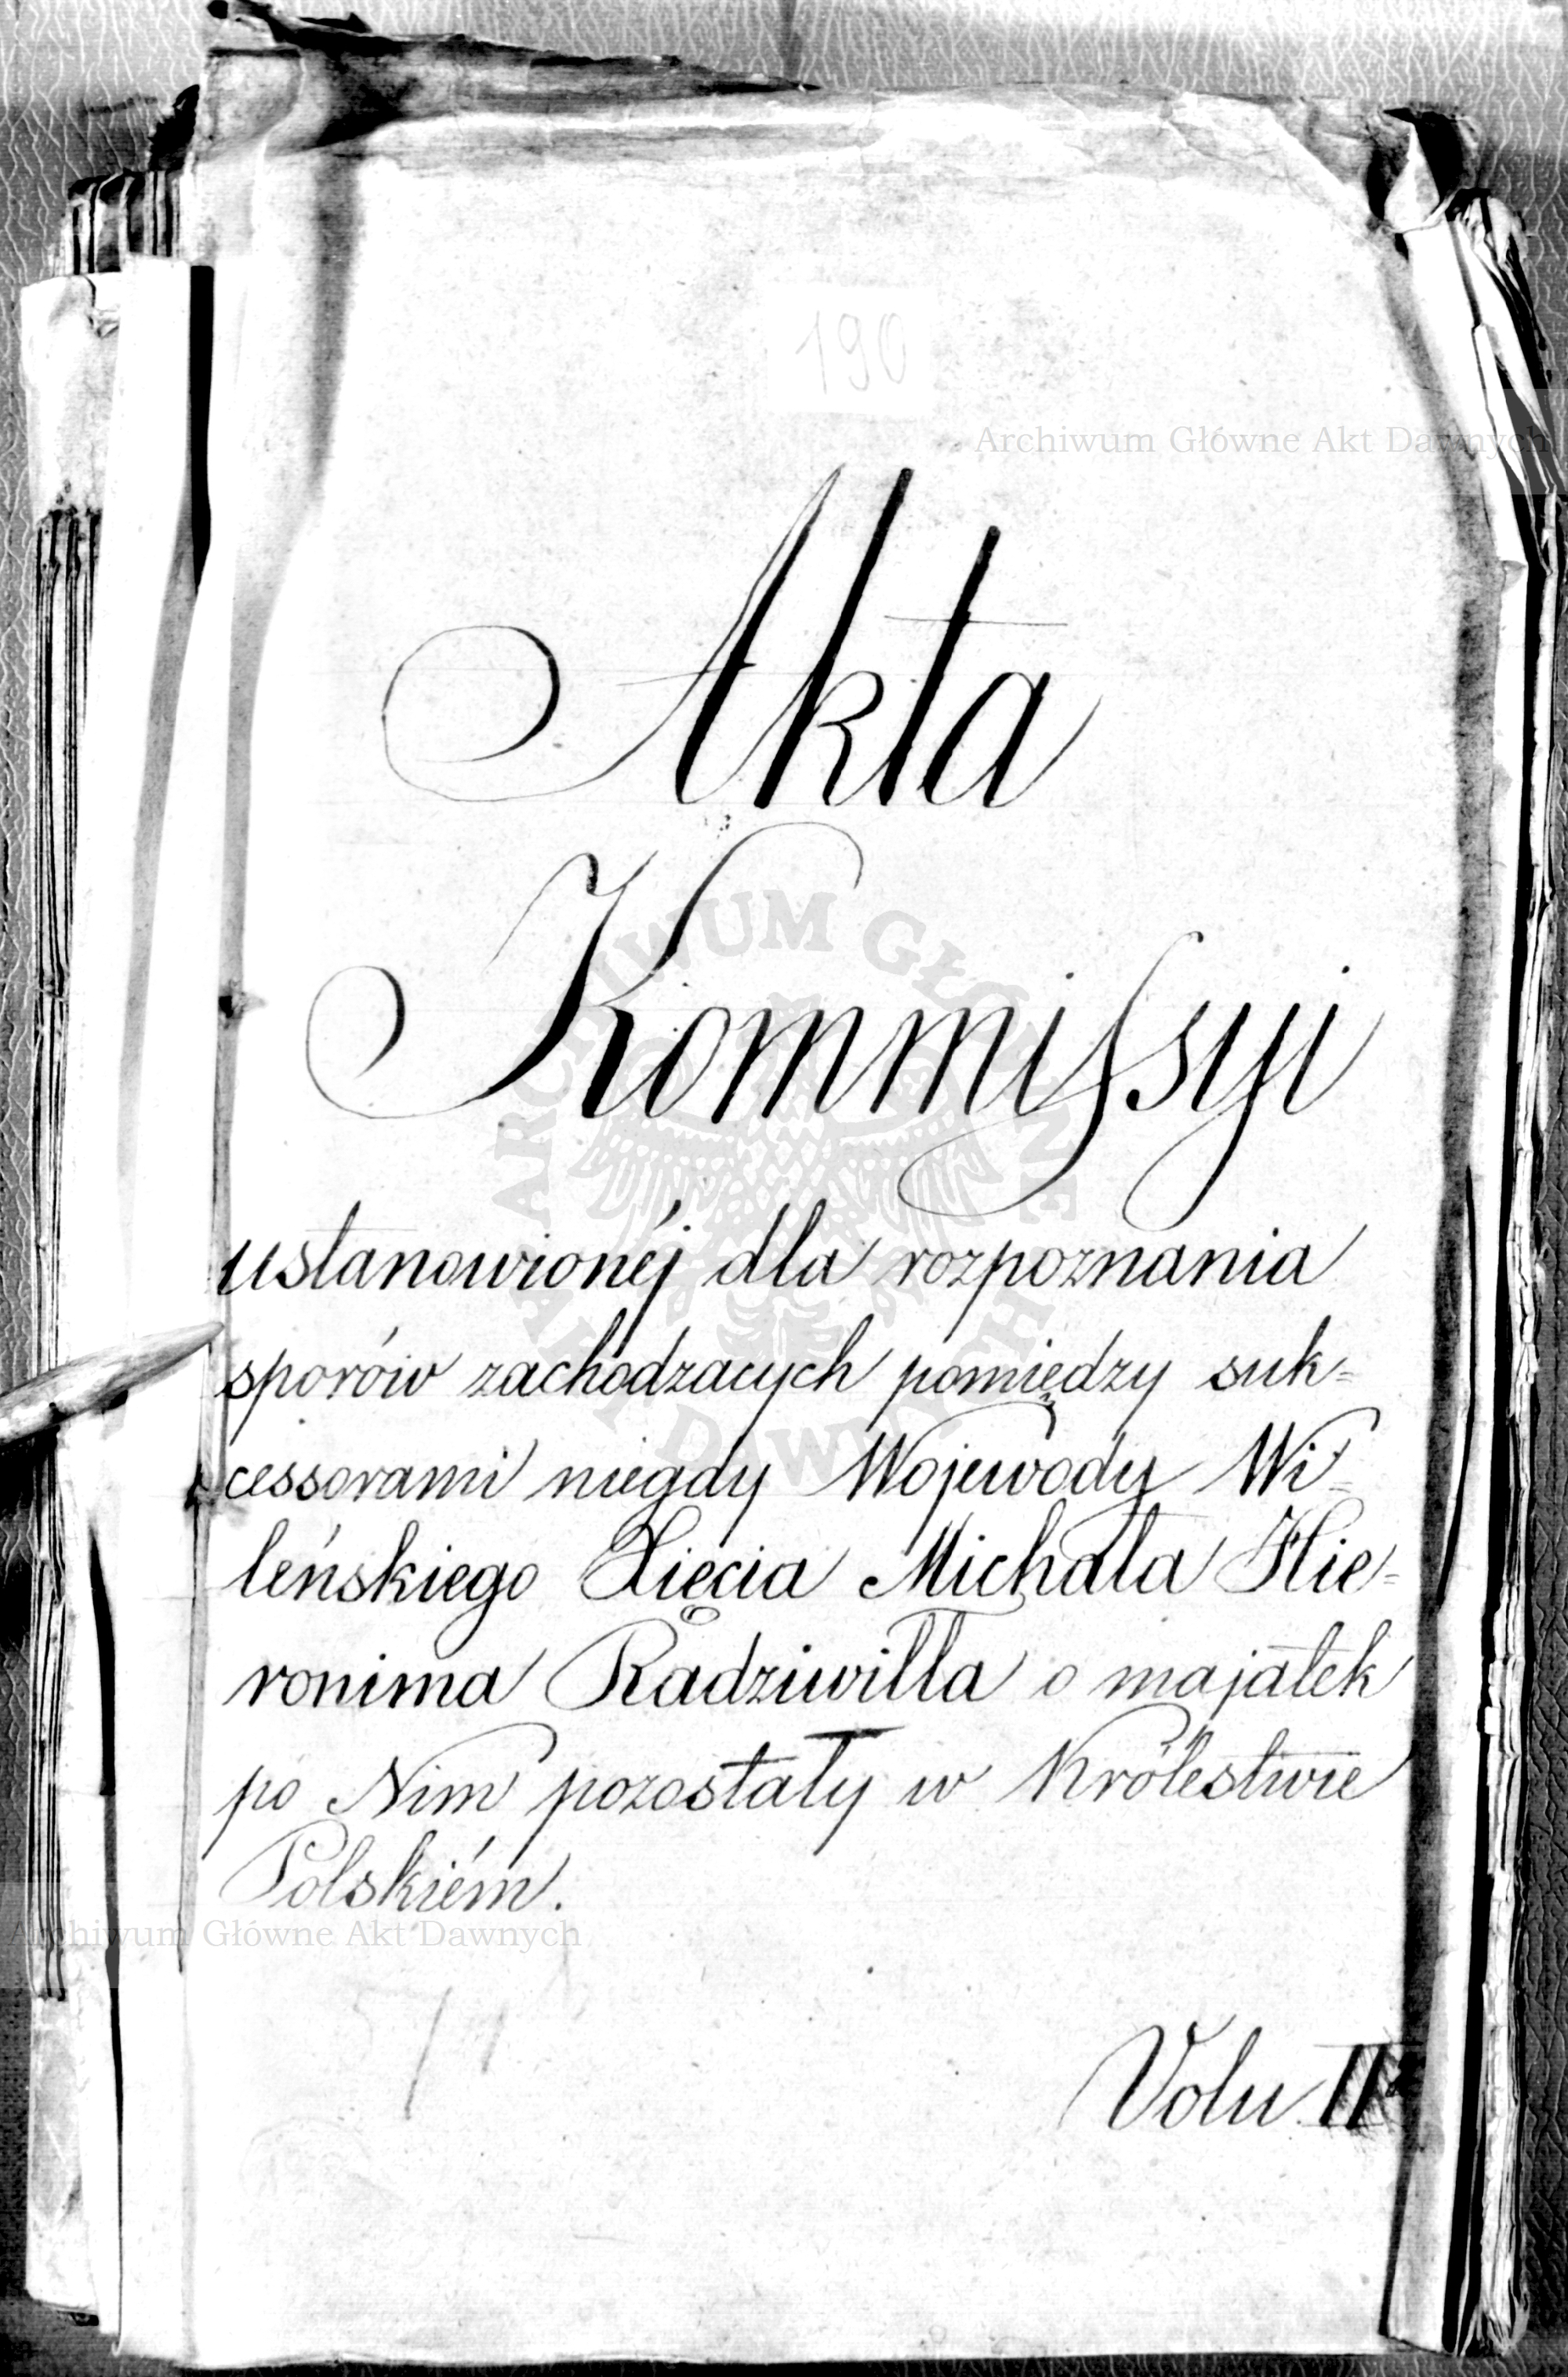 190
Archiwum Główne Akt Dawnych
Akta
Kommissyi
ARCHIWUM GŁÓWNE
AKT DAWNYCH
ustanowionéj dla rozpoznania
sporów zachodzacych pomiędzy suk=
cessorami niegdy Wojewody Wi=
leńskiego Xięcia Michała Hie=
ronima Radziwiłła o majątek
po Nim pozostały w Królestwie
Polskiém.
Archiwum Główne Akt Dawnych
Volu II